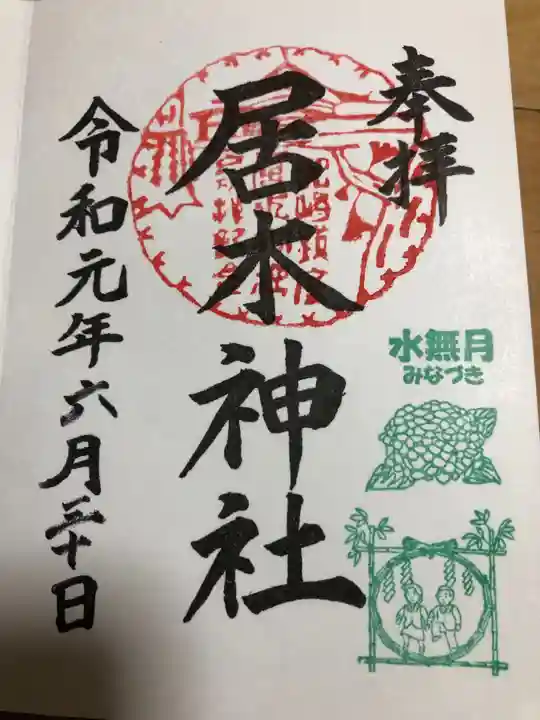 奉拝
居木神社
令和元年六月三十日
水無月
みなづき